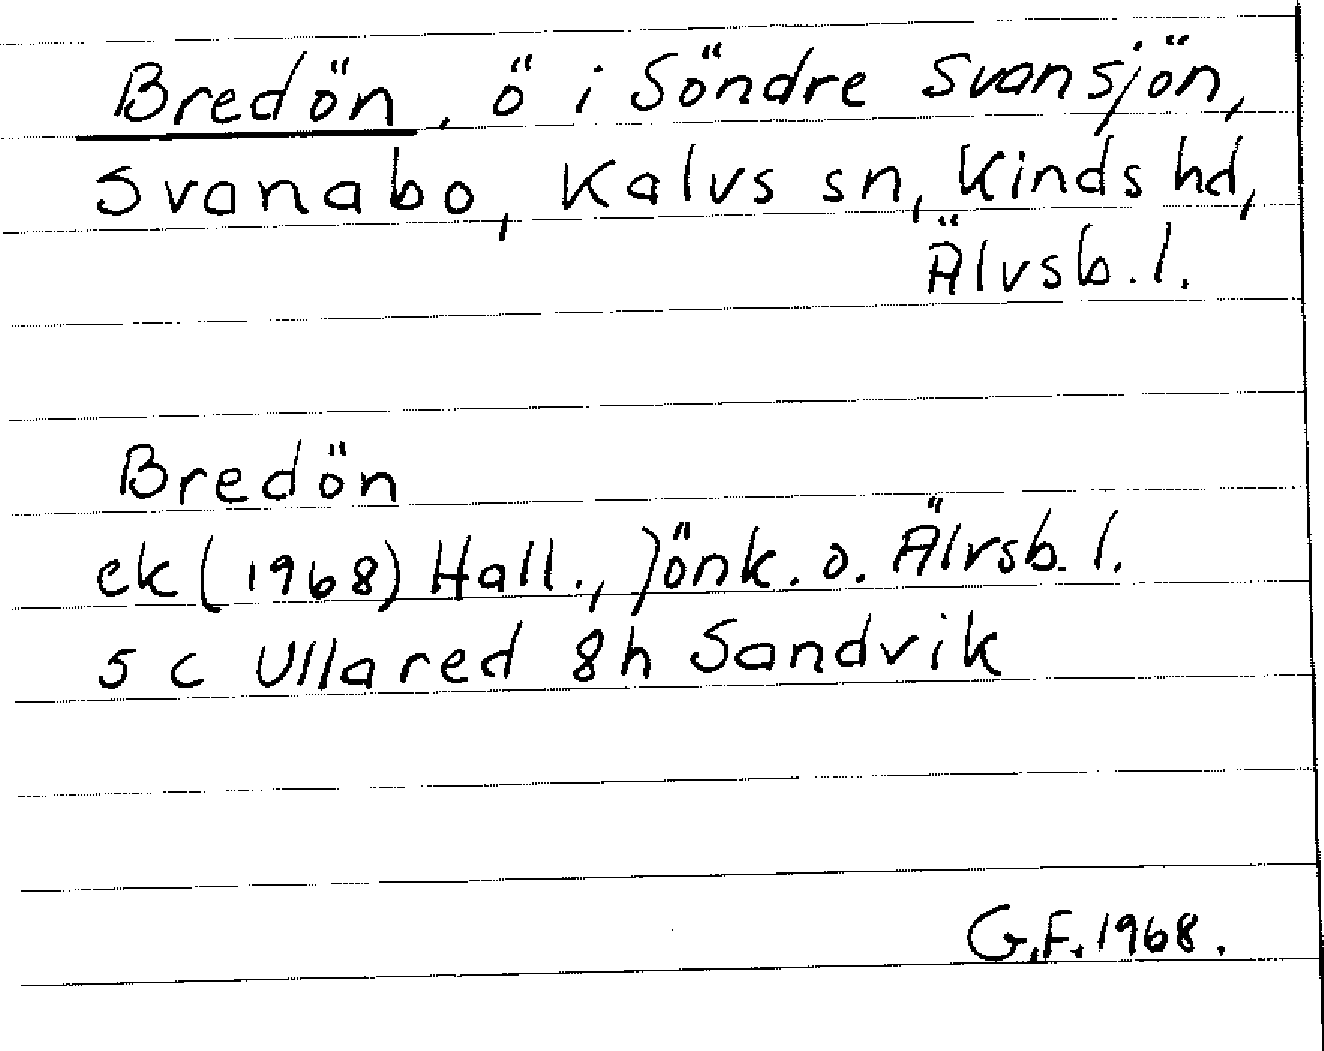 Bredön, ö i Söndre Svansjön,
Svanabo, Kalvs sn, Kinds hd,
Älvsb. l.
Bredön
ek (1968) Hall., Jönk. o. Älvsb. l.
5 C Ullared 8h Sandvik
G.F. 1968.